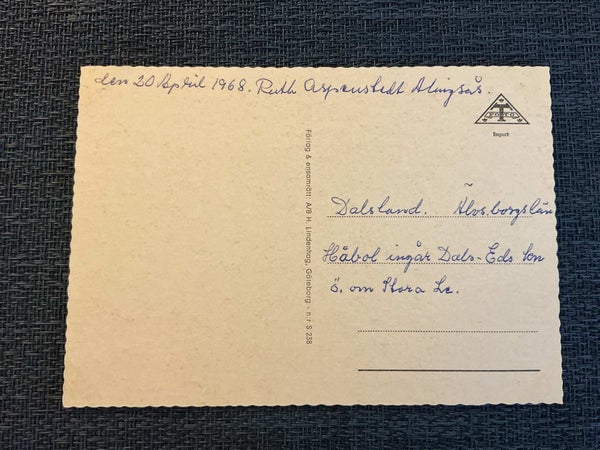 den 20 April 1968. Ruth Aspenstedt Alingsås.
T
FOTO
Import
Förlag & ensamrätt: A/B H. Lindenhag, Göteborg - n:r S 238
Dalsland. Älvsborgslän
Håbol ingår Dals-Eds
ö. om Stora Le.